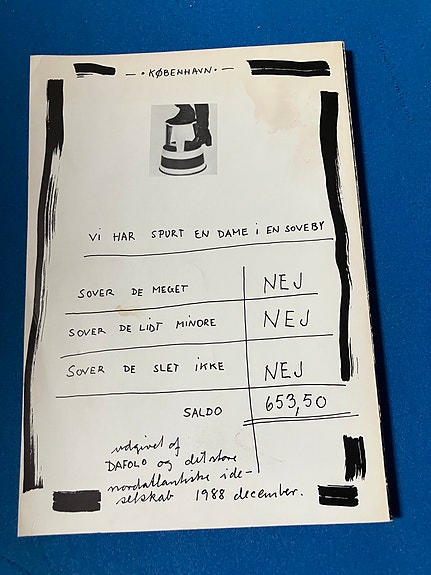 — • KØBENHAVN • —
VI HAR SPURT EN DAME I EN SOVEBY
SOVER DE MEGET NEJ
SOVER DE LIDT MINDRE NEJ
SOVER DE SLET IKKE NEJ
SALDO 653,50
udgivet af
DAFOLO og det store
nordatlantiske ide-
selskab 1988 december.